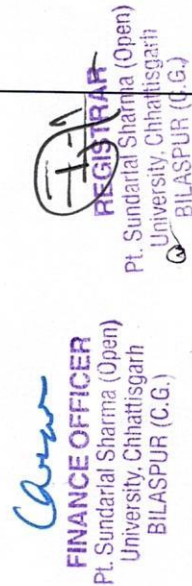 FINANCE OFFICER
Pt. Sundarlal Sharma (Open)
University, Chhattisgarh
BILASPUR (C.G.)
REGISTRAR
Pt. Sundarlal Sharma (Open)
University, Chhattisgarh
BILASPUR (C.G.)